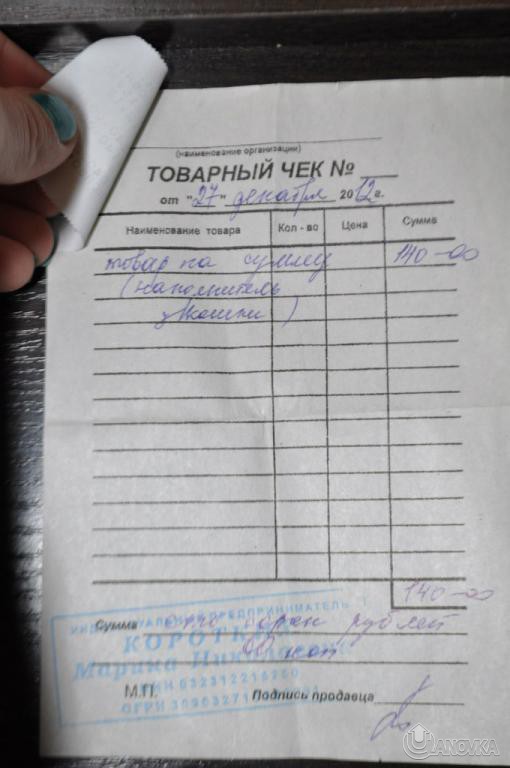 (наименование организации)
ТОВАРНЫЙ ЧЕК №
от "27" декабря 2012г.
Наименование товара Кол - во Цена Сумма
товар на сумму 140-00
(наполнитель
д/кошки)
140-00
ИНДИВИДУАЛЬНЫЙ ПРЕДПРИНИМАТЕЛЬ
Сумма Сто сорок рублей
00 коп
Марина Николаевна
ИНН 032312216260
М.П. Подпись продавца
ОГРН
UANOVKA